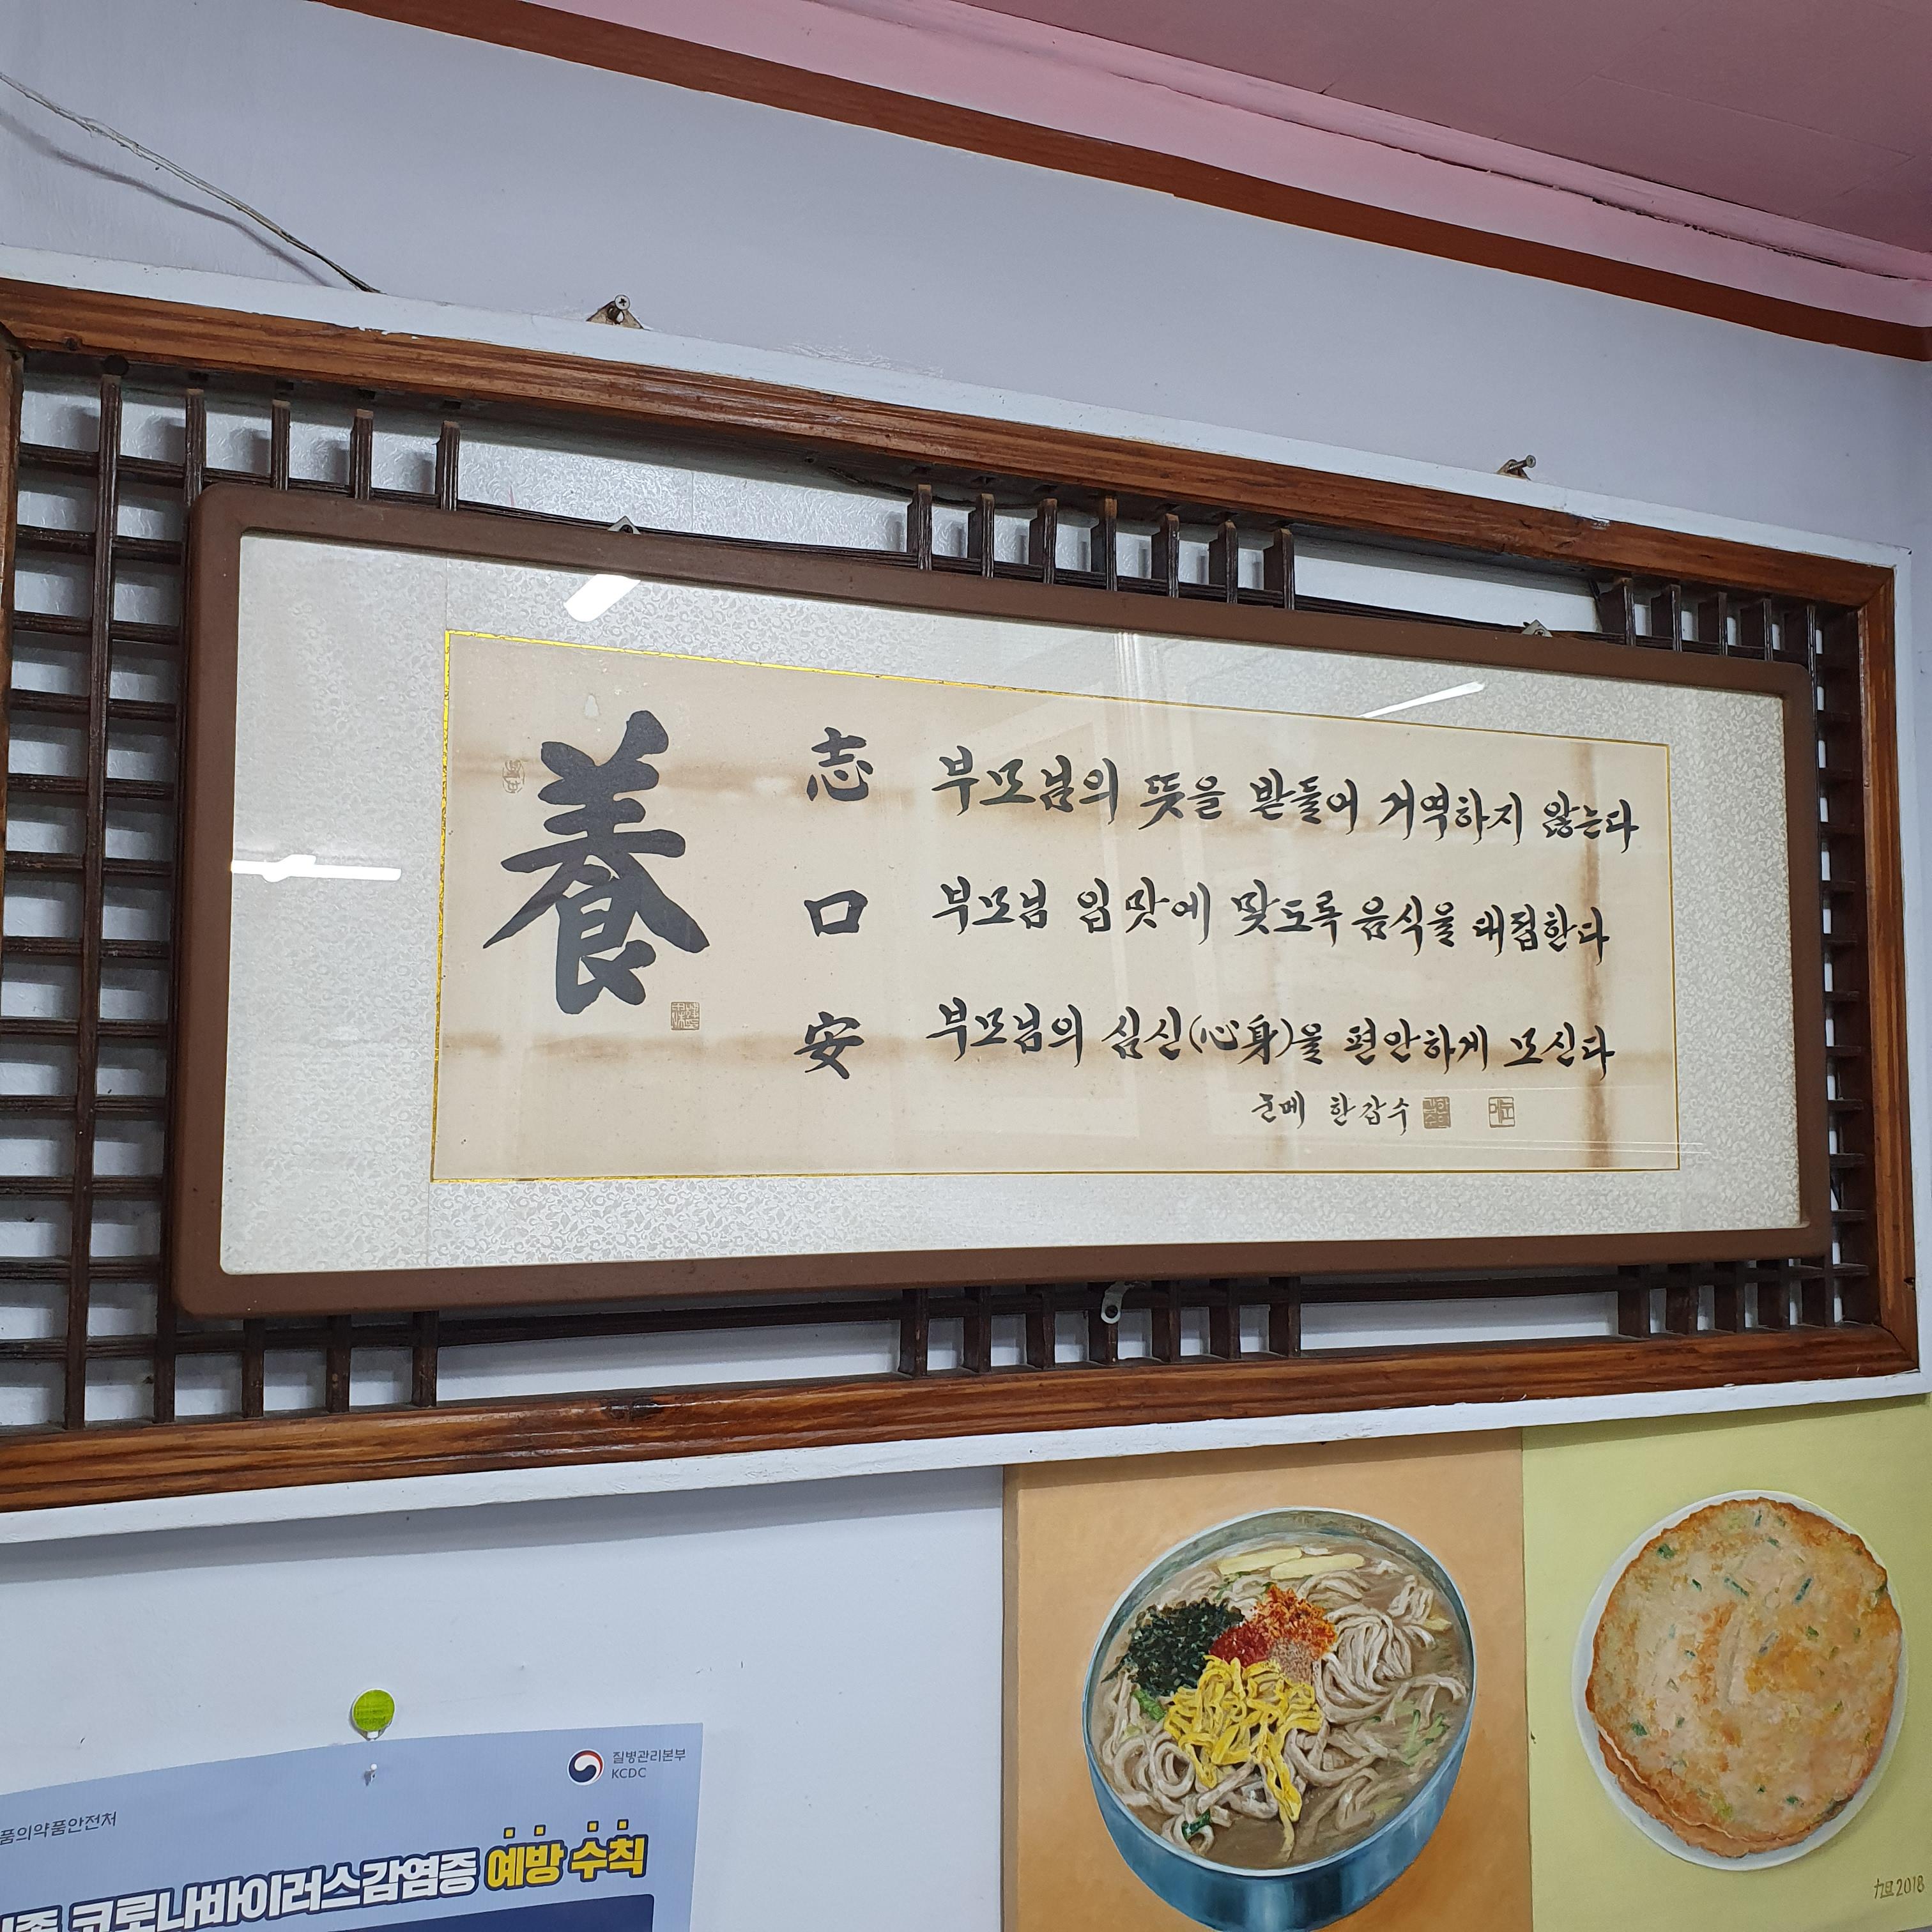 養
志 부모님의 뜻을 받들어 거역하지 않는다
口 부모님 입맛에 맞도록 음식을 대접한다
安 부모님의 심신(心身)을 편안하게 모신다
눈메 한갑수
질병관리본부
KCDC
품의약품안전처
코로나바이러스감염증 예방 수칙
旭2018